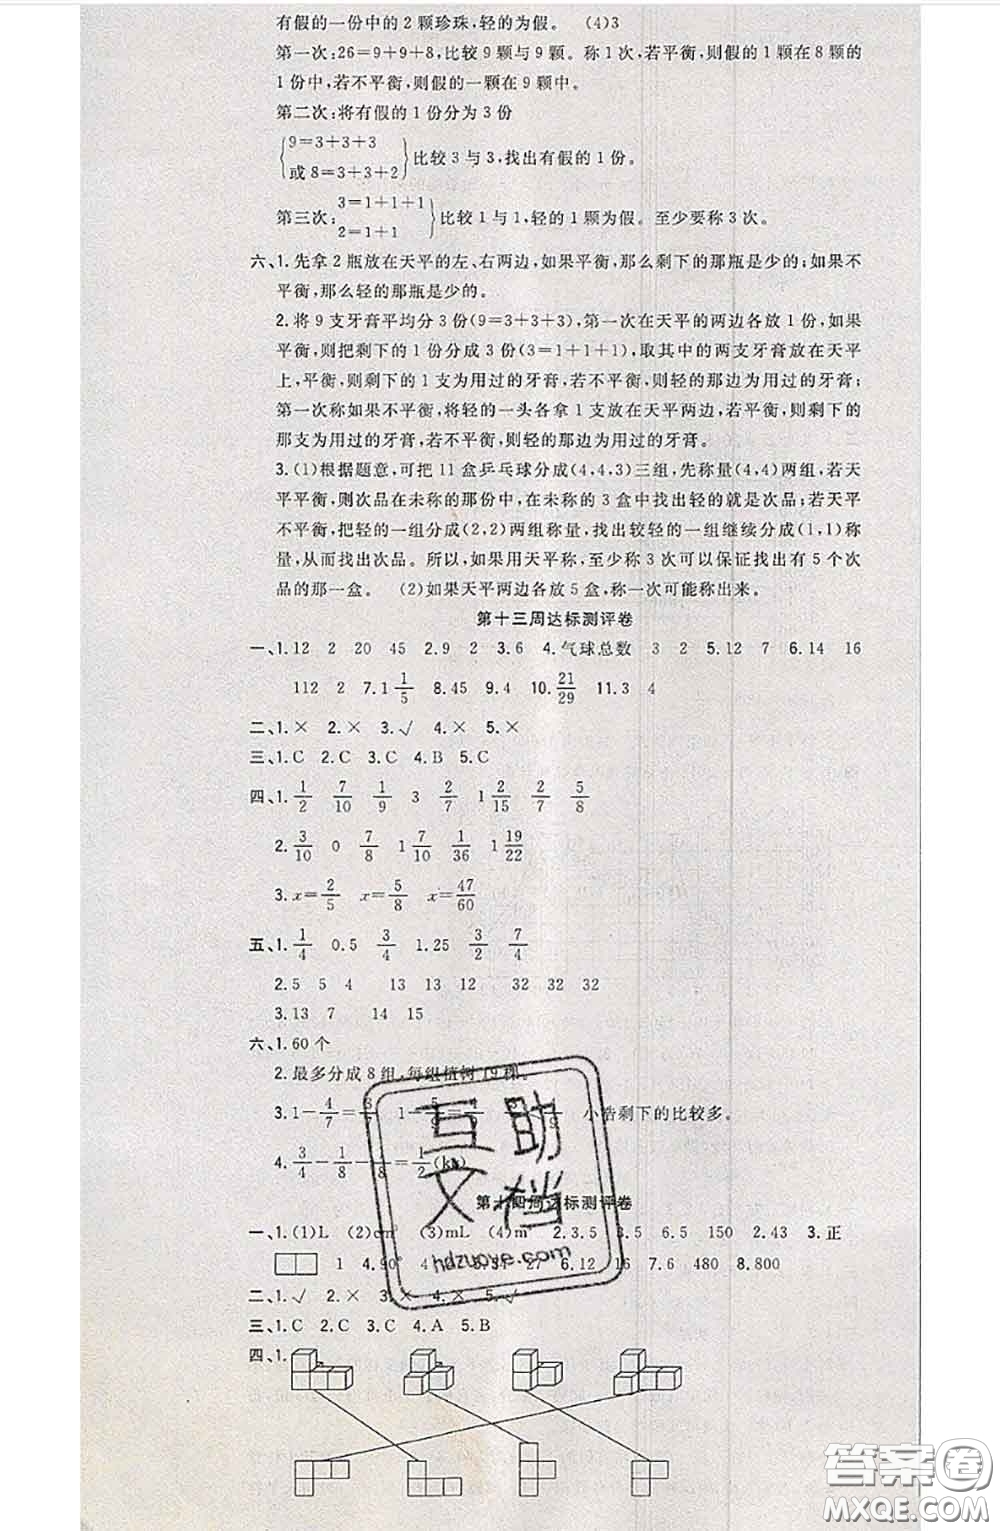 有假的一份中的2颗珍珠,轻的为假。 (4)3
第一次:26=9+9+8,比较9颗与9颗。称1次,若平衡,则假的1颗在8颗的
1份中,若不平衡,则假的一颗在9颗中。
第二次:将有假的1份分为3份
9=3+3+3
或8=3+3+2
比较3与3,找出有假的1份。
第三次:
3=1+1+1
2=1+1
比较1与1,轻的1颗为假。至少要称3次。
六、1.先拿2瓶放在天平的左、右两边,如果平衡,那么剩下的那瓶是少的;如果不
平衡,那么轻的那瓶是少的。
2.将9支牙膏平均分3份(9=3+3+3),第一次在天平的两边各放1份,如果
平衡,则把剩下的1份分成3份(3=1+1+1),取其中的两支牙膏放在天平
上,平衡,则剩下的1支为用过的牙膏,若不平衡,则轻的那边为用过的牙膏;
第一次称如果不平衡,将轻的一头各拿1支放在天平两边,若平衡,则剩下的
那支为用过的牙膏,若不平衡,则轻的那边为用过的牙膏。
3.(1)根据题意,可把11盒乒乓球分成(4,4,3)三组,先称量(4,4)两组,若天
平平衡,则次品在未称的那份中,在未称的3盒中找出轻的就是次品;若天平
不平衡,把轻的一组分成(2,2)两组称量,找出较轻的一组继续分成(1,1)称
量,从而找出次品。所以,如果用天平称,至少称3次可以保证找出有5个次
品的那一盒。 (2)如果天平两边各放5盒,称一次可能称出来。
第十三周达标测评卷
一、1.12 2 20 45 2.9 2 3.6 4.气球总数 3 2 5.12 7 6.14 16
112 2 7.1 1/5 8.45 9.4 10.21/29 11.3 4
二、1.× 2.× 3.√ 4.× 5.×
三、1.C 2.C 3.C 4.B 5.C
四、1.1/2 7/10 1/9 3 2/7 1 2/15 2/7 5/8
2.3/10 0 7/8 1 7/10 1/36 1 19/22
3.x=2/5 x=5/8 x=47/60
五、1.1/4 0.5 3/4 1.25 3/2 7/4
2.5 5 4 13 13 12 32 32 32
3.13 7 14 15
六、1.60个
2.最多分成8组,每组植树19棵。
3.1-4/7= 1- = < 小浩剩下的比较多。
4.3/4-1/8- =1/2(k
第十四周达标测评卷
一、1.(1)L (2)cm (3)mL (4)m 2.3.5 3.5 6.5 150 2.43 3.正
1 4.90° 4 27 6.12 16 7.6 480 8.800
二、1.√ 2.× 3.× 4.× 5.√
三、1.C 2.C 3.C 4.A 5.B
四、1.
互助
文档
hdzuoye.com
答案圈
MXQE.COM